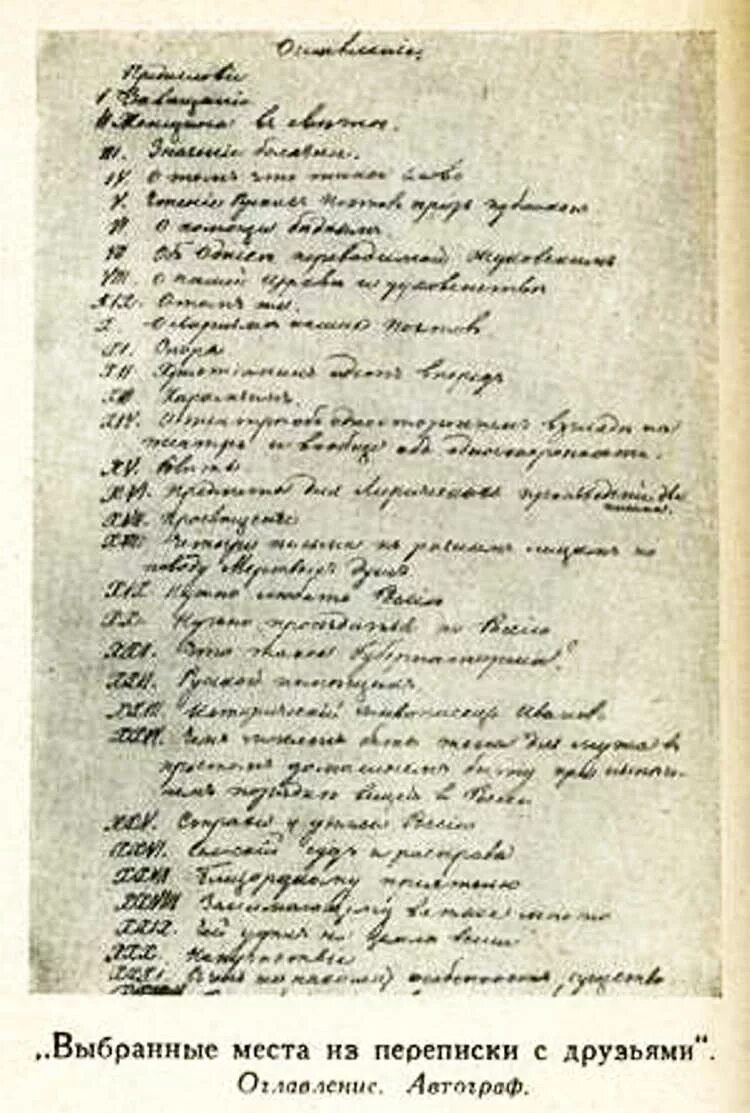 Оглавленіе
Предисловіе
I Завещаніе
II Женщина в свѣтѣ.
III. Значеніе болезни.
IV. О томъ что такое слово
V. Чтеніе Русских поэтовъ предъ публикою
VI О помощи бедным
VII Об Одиссеи переводимой Жуковскимъ
VIII. О нашей Церкви и духовенстве
XIX. О том же.
X. О лиризме наших поэтов
XI. Споры
XII Христіанин идетъ впередъ
XIII Карамзинъ.
XIV. О театре об одностороннем взгляде на
театръ и вообще об односторонности.
XV.
XVI. Предметы для Лирическаго
XVII. Просвещеніе
XVIII Четыре письма къ разным лицам по
поводу Мертвых Душъ
XIX Нужно любить Россію
XX. Нужно проездиться по Россіи
XXI. Что такое губернаторша?
XXII. Русской помещикъ
XXIII Историческій живописец Иванов
XXIV. Чем может быть жена для мужа в
простом домашнем быту при нынеш-
нем порядке вещей в Россіи
XXV. Россіи
XXVI. Сельскій суд и расправа
XXVII Близорукому пріятелю
XXVIII Занимающему важное место
XXIX. Чей удел на земле выше
XXX. Напутствіе
XXXI. особенность, существо
„Выбранные места из переписки с друзьями“.
Оглавление. Автограф.